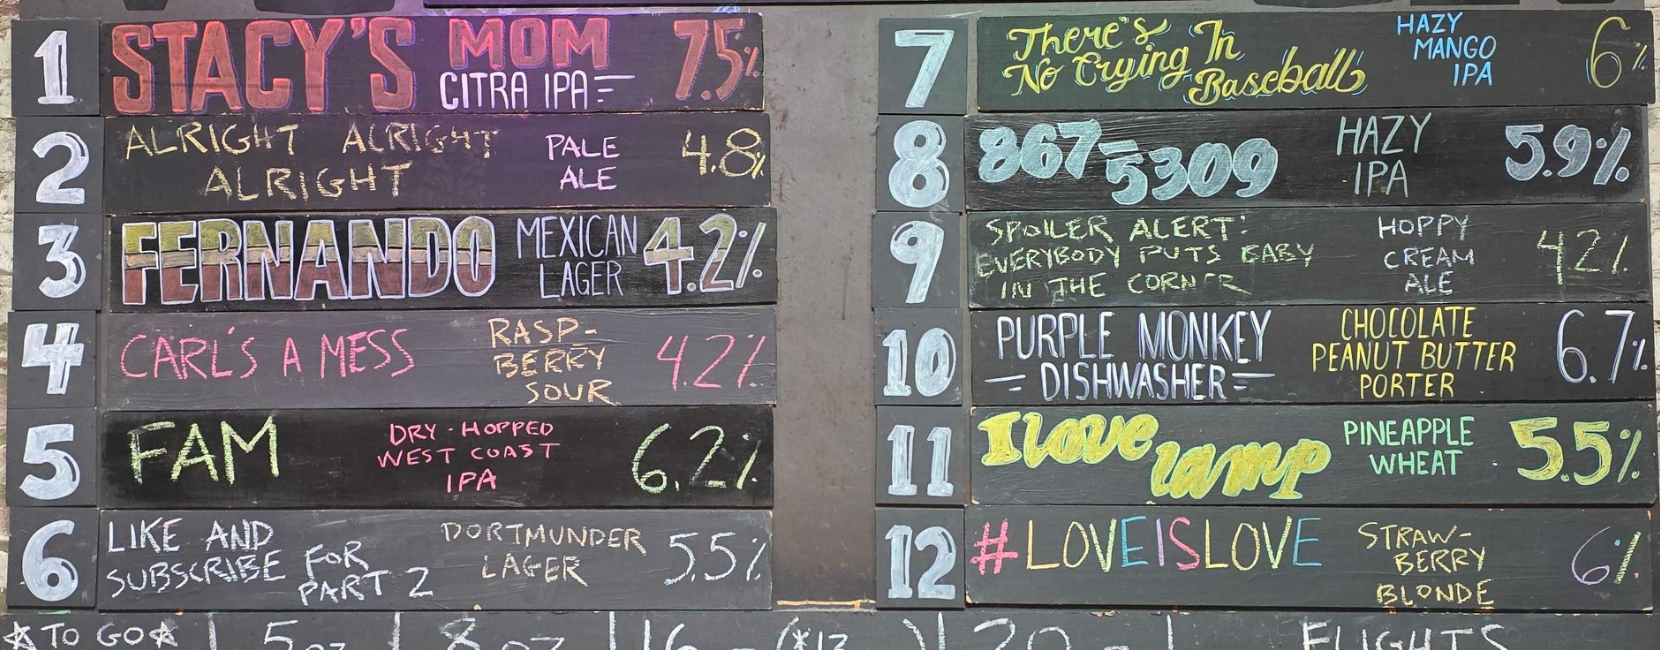 1 STACY'S MOM 7.5%
CITRA IPA
2 ALRIGHT ALRIGHT PALE 4.8%
ALRIGHT ALE
3 FERNANDO MEXICAN 4.2%
LAGER
4 CARL'S A MESS RASP- 4.2%
BERRY
SOUR
5 FAM DRY-HOPPED 6.2%
WEST COAST
IPA
6 LIKE AND DORTMUNDER 5.5%
SUBSCRIBE FOR LAGER
PART 2
7 There's HAZY 6%
No Crying In MANGO
Baseball IPA
8 867-5309 HAZY 5.9%
IPA
9 SPOILER ALERT: HOPPY 4.2%
EVERYBODY PUTS BABY CREAM
IN THE CORN R ALE
10 PURPLE MONKEY CHOCOLATE 6.7%
DISHWASHER PEANUT BUTTER
PORTER
11 I love lamp PINEAPPLE 5.5%
WHEAT
12 #LOVEISLOVE STRAW- 6%
BERRY
BLONDE
*TO GO* 5oz 8oz 16 20 FLIGHTS